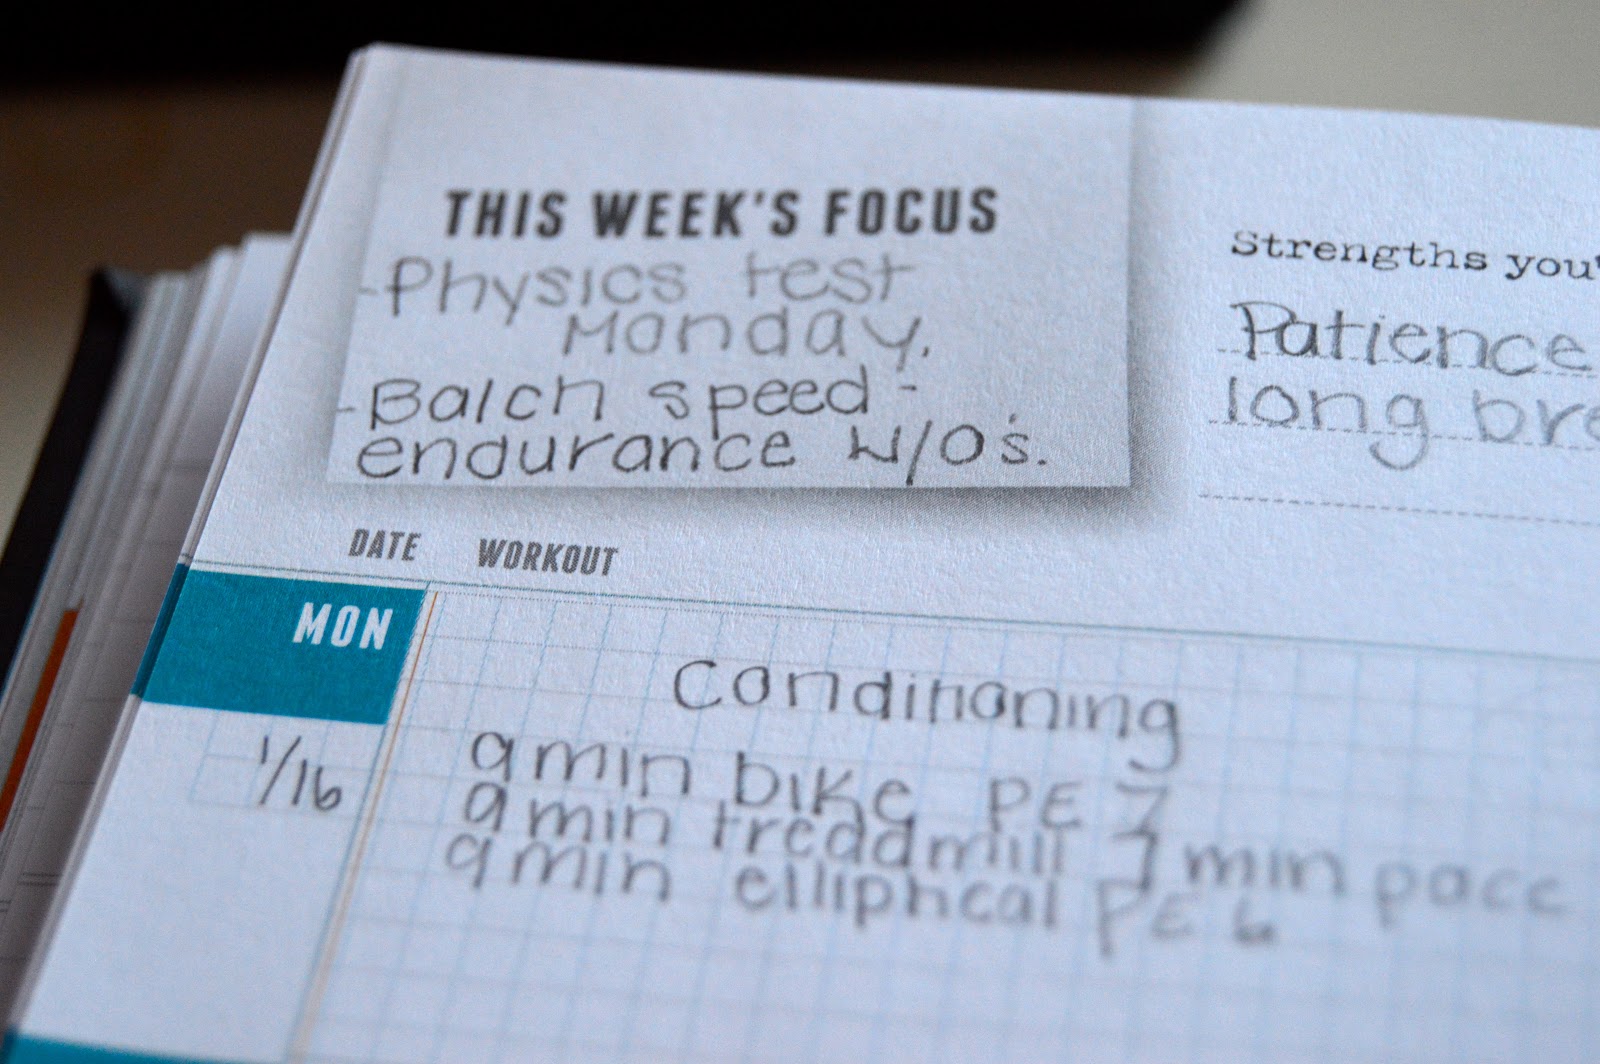 THIS WEEK'S FOCUS
-Physics test
Monday.
-Balch speed-
endurance w/O's.
Strengths you'
Patience
long bre
DATE WORKOUT
MON
1/16
Conditioning
9 min bike PE 7
9 min treadmill 7 min pace
9 min elliptical PE 6